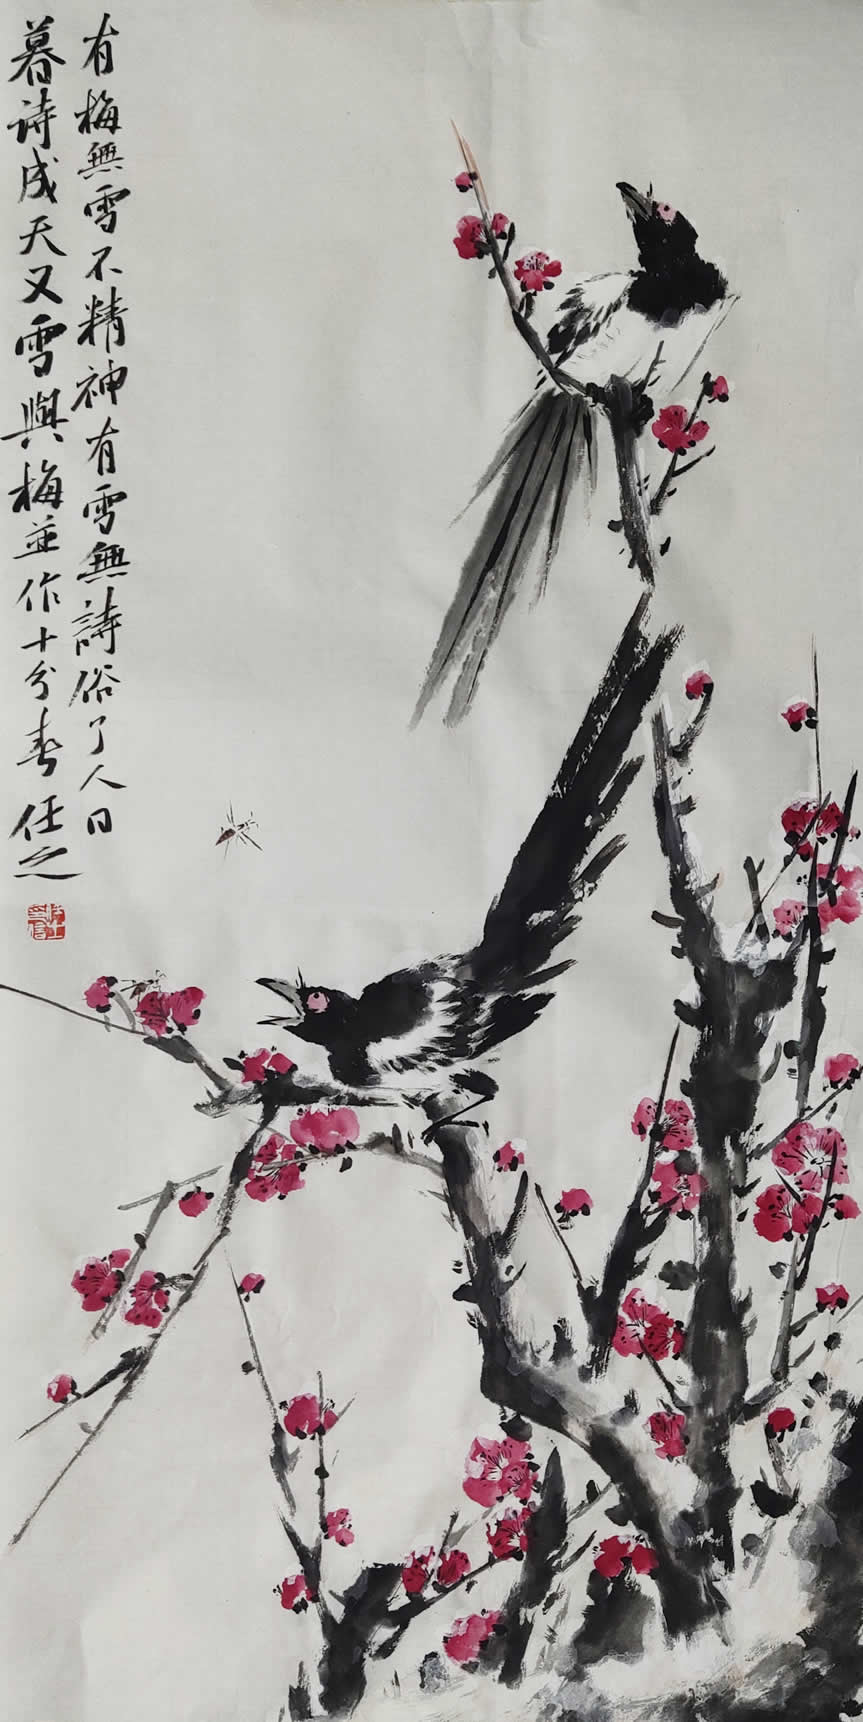 有梅無雪不精神有雪無詩俗了人日
暮詩成天又雪與梅並作十分春任之